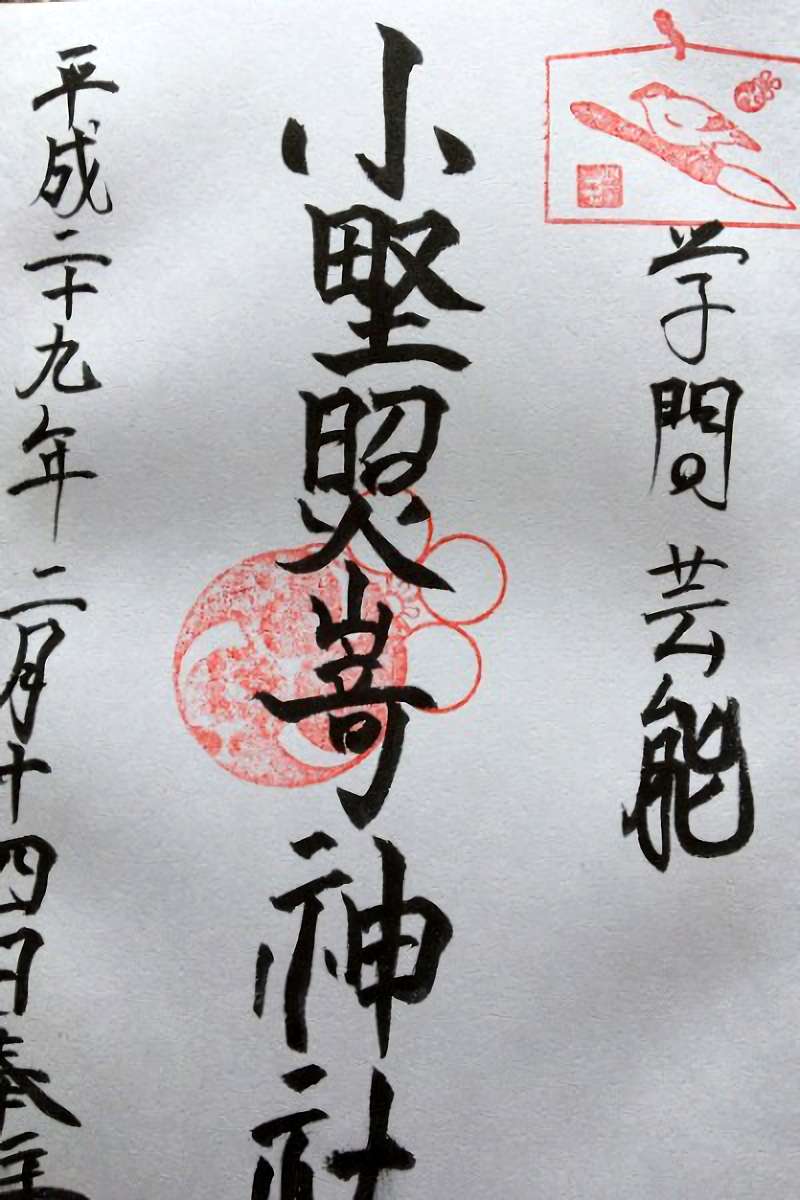 学問 芸能
小野照崎神社
平成二十九年二月十四日奉拝